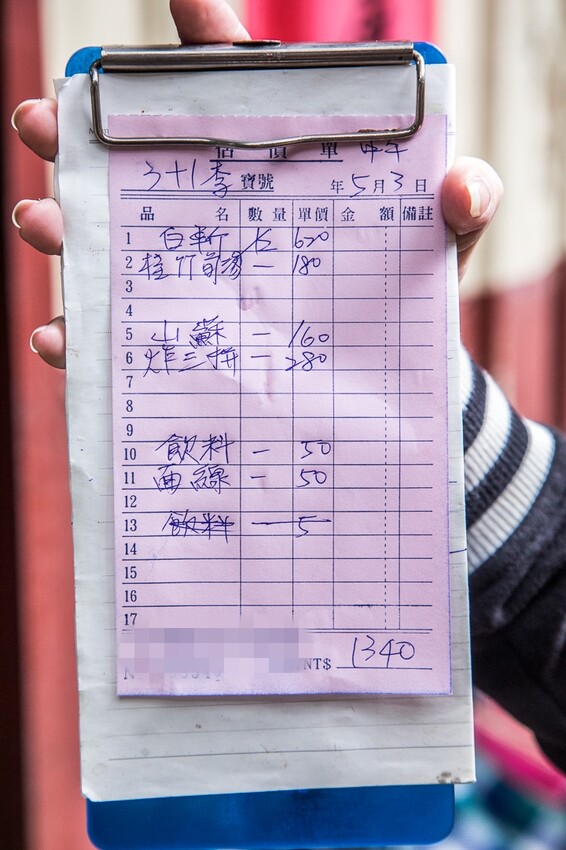 估價單 中午
3+1 李 寶號 年 5 月 3 日
品名 數量 單價 金額 備註
1 白斬 620
2 桂竹筍湯 一 180
3
4
5 山蘇 一 160
6 炸三拼 一 280
7
8
9
10 飲料 一 50
11 面線 一 50
12
13 飲料 一 5
14
15
16
17
NT$ 1340